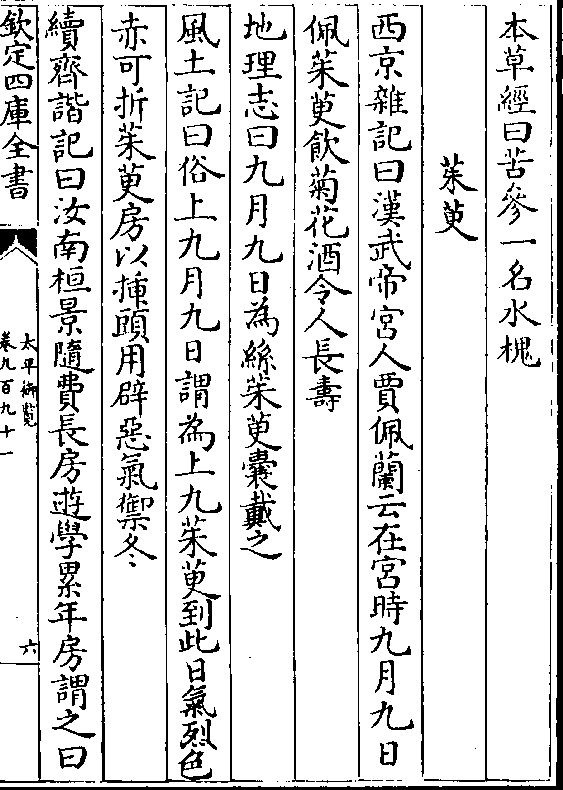 本草經曰苦參一名水槐
茱萸
西京雜記曰漢武帝宮人賈佩蘭云在宮時九月九日
佩茱萸飲菊花酒令人長壽
地理志曰九月九日為絲茱萸囊戴之
風土記曰俗上九月九日謂為上九茱萸到此日氣烈色
赤可折茱萸房以揷頭用辟惡氣禦冬
續齊諧記曰汝南桓景隨費長房遊學累年房謂之曰
欽定四庫全書
太平御覽
卷九百九十一
六